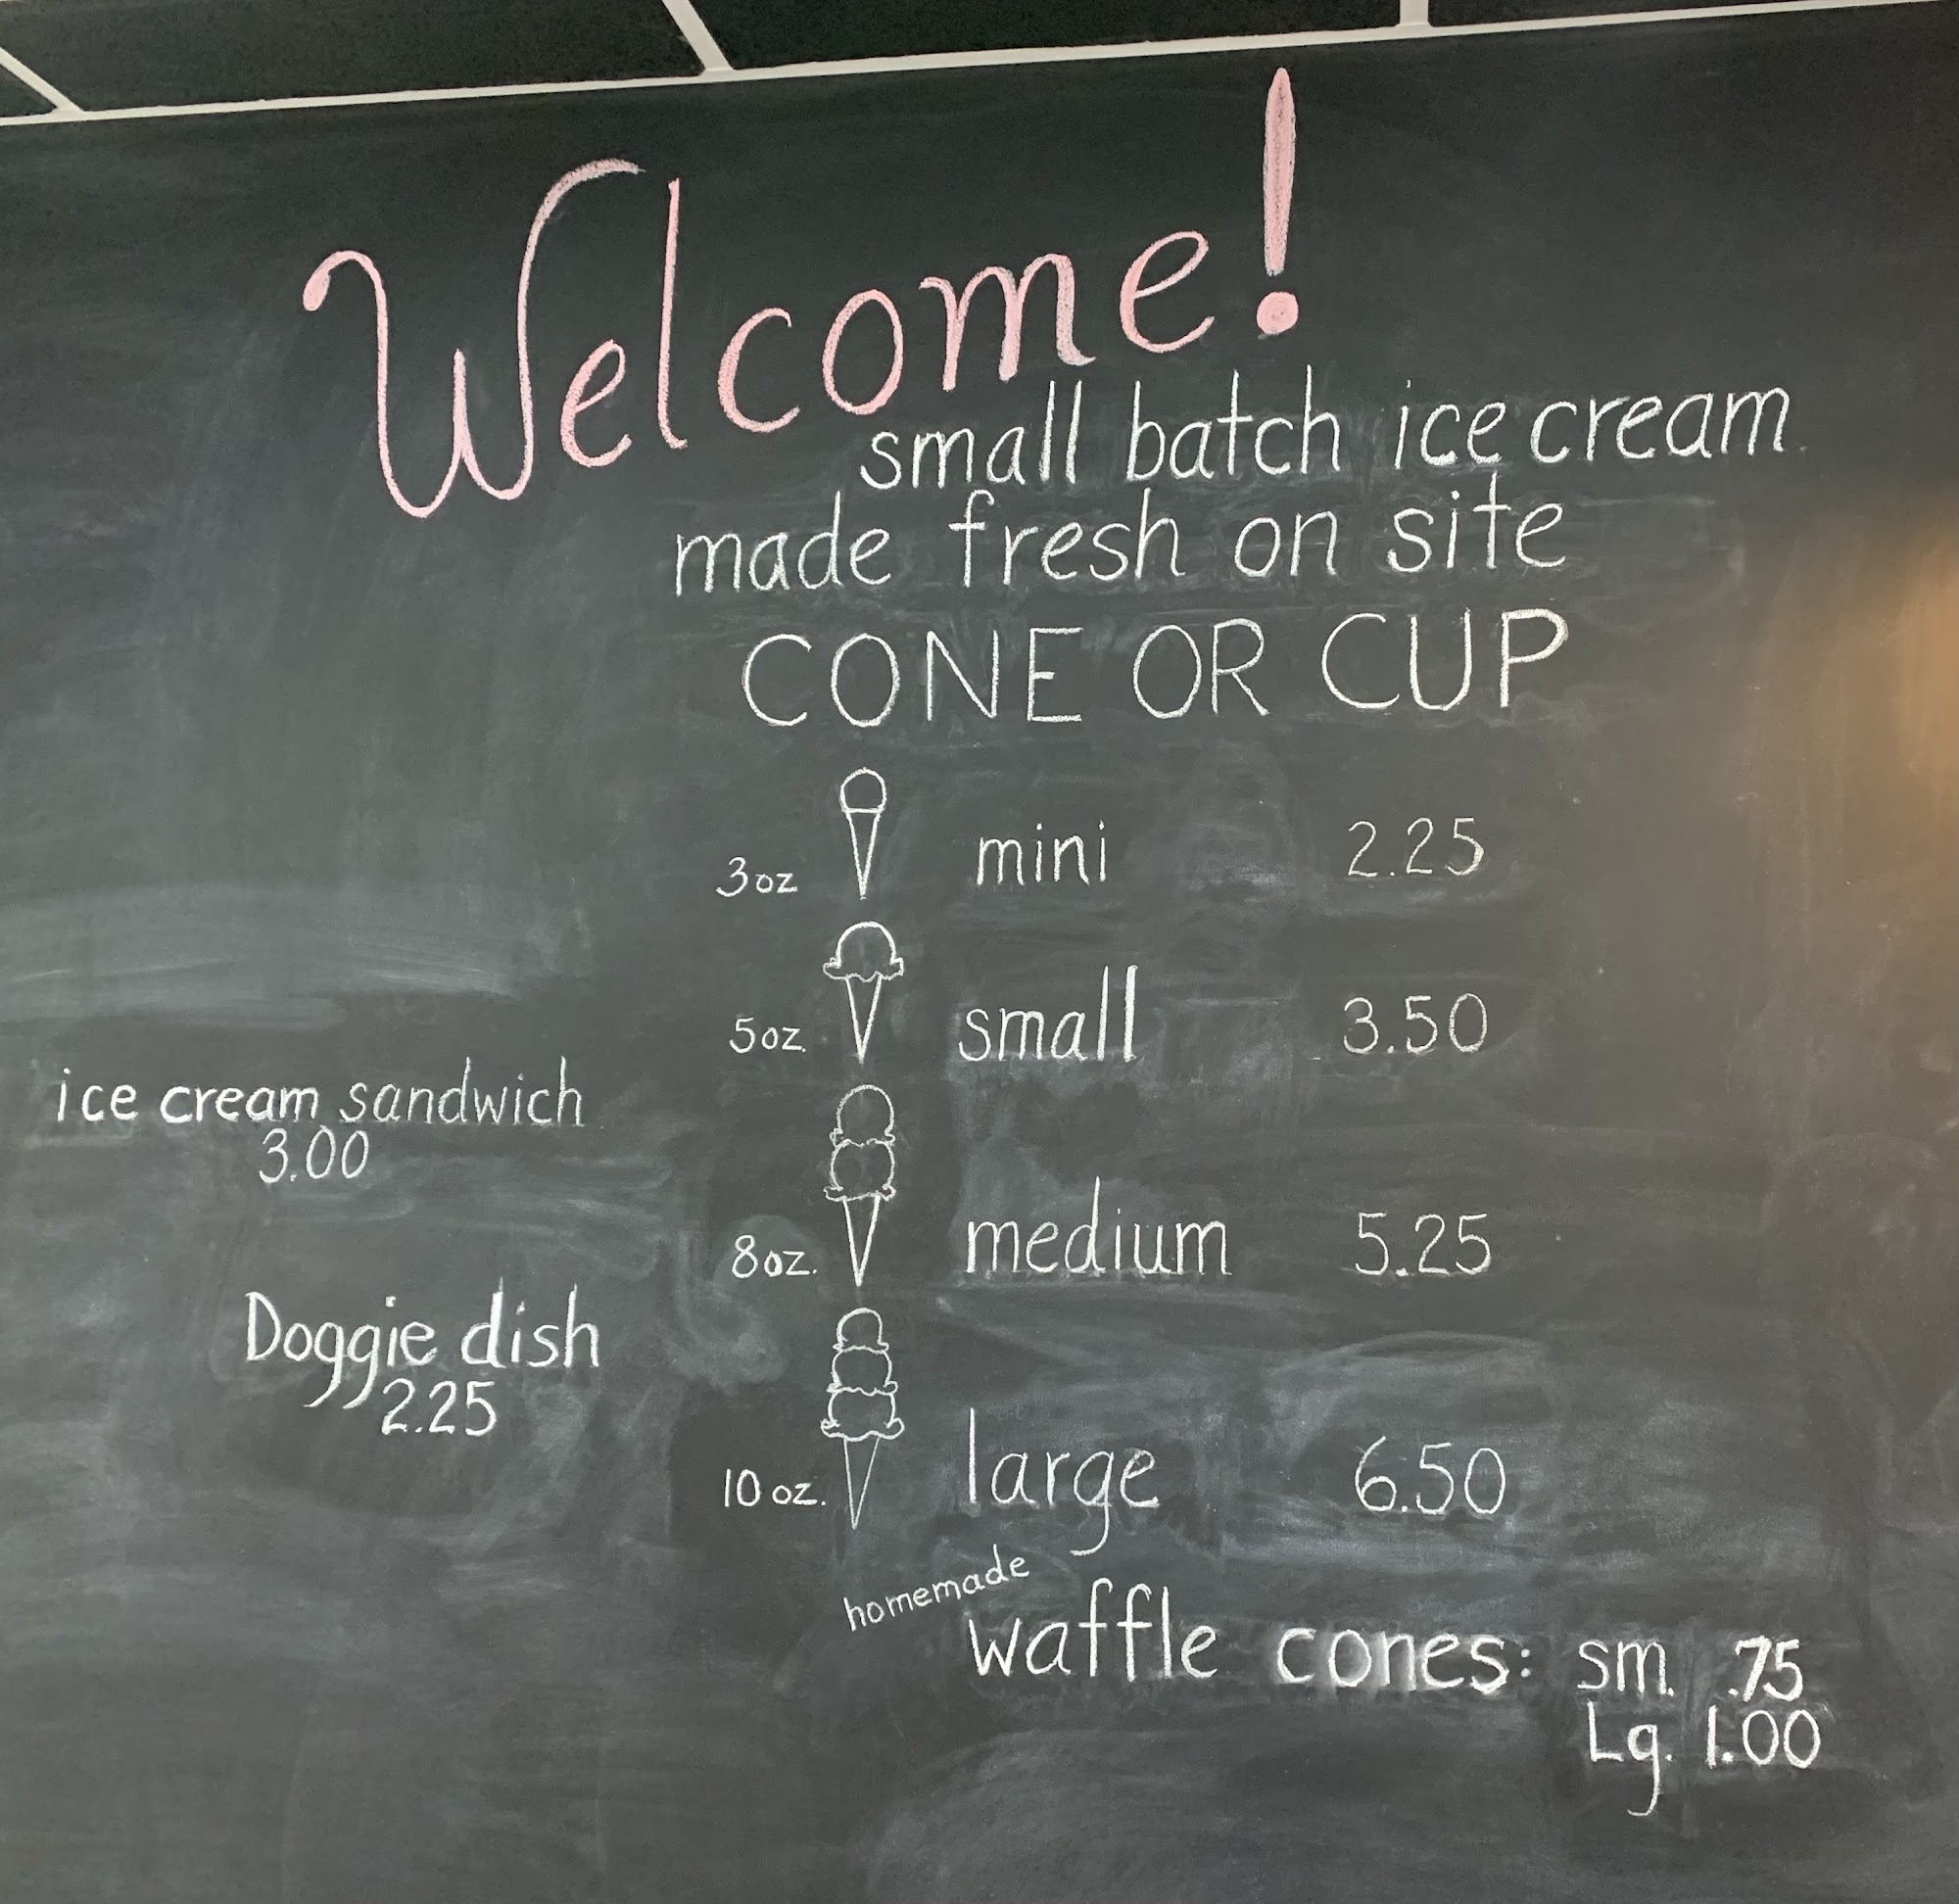 Welcome!
small batch ice cream
made fresh on site
CONE OR CUP
3oz mini 2.25
5oz. small 3.50
ice cream sandwich
3.00
8oz. medium 5.25
Doggie dish
2.25
10 oz. large 6.50
homemade
waffle cones: sm. .75
Lg. 1.00